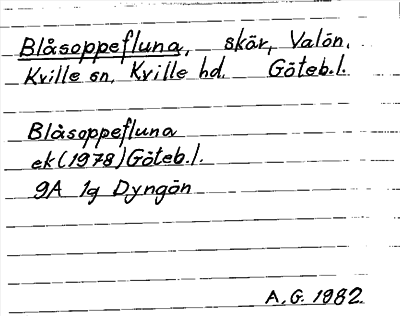 Blåsoppefluna, skär, Valön.
Kville sn, Kville hd. Göteb.l.
Blåsoppefluna
ek (1978) Göteb.l.
9A 1g Dyngön
A.G. 1982